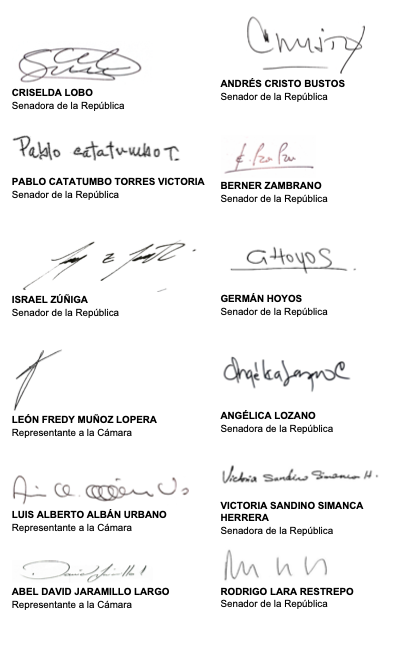 CRISELDA LOBO
Senadora de la República
Cristo
ANDRÉS CRISTO BUSTOS
Senador de la República
Pablo catatumbo T.
PABLO CATATUMBO TORRES VICTORIA
Senador de la República
BERNER ZAMBRANO
Senador de la República
ISRAEL ZÚÑIGA
Senador de la República
GHoyos
GERMÁN HOYOS
Senador de la República
LEÓN FREDY MUÑOZ LOPERA
Representante a la Cámara
Angélica Lozano C
ANGÉLICA LOZANO
Senadora de la República
LUIS ALBERTO ALBÁN URBANO
Representante a la Cámara
Victoria Sandino Simanca H.
VICTORIA SANDINO SIMANCA
HERRERA
Senadora de la República
ABEL DAVID JARAMILLO LARGO
Representante a la Cámara
RODRIGO LARA RESTREPO
Senador de la República